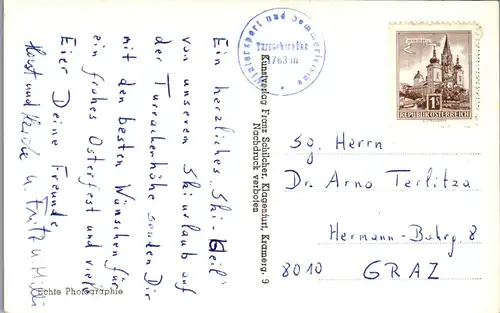 Ein herzliches „Ski-Heil"
von unseren Skiurlaub auf
der Turracherhöhe senden Dir
mit den besten Wünschen für
ein frohes Osterfest und viele
Eier Deine Freunde
Horst und u. Fritz u. Milli
Echte Photographie
Wintersport und Sommerfrische
Turracherhöhe
1763 m
Kunstverlag Franz Schilcher, Klagenfurt, Kramerg. 9
Nachdruck verboten
1S
REPUBLIK ÖSTERREICH
Sg. Herrn
Dr. Arno Terlitza
Hermann-Bahrg. 8
8010 GRAZ